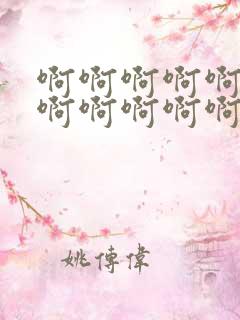 啊啊啊啊啊
啊啊啊啊啊
姚傳偉